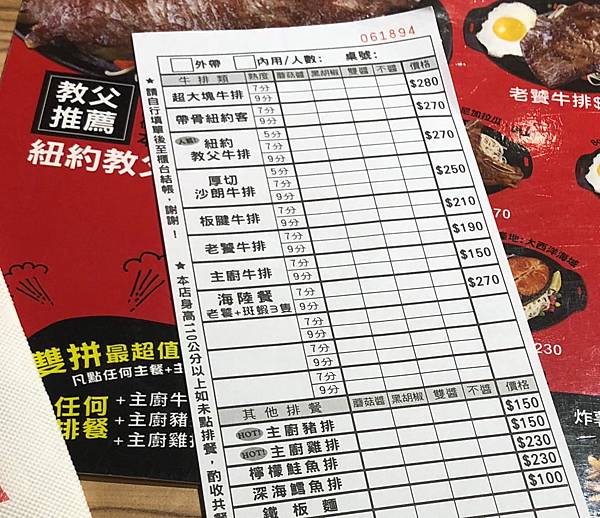 061894
外帶 內用/人數: 桌號:
牛排類 熟度 蘑菇醬 黑胡椒 雙醬 不醬 價格
超大塊牛排 7分 9分 $280
帶骨紐約客 7分 9分 $270
人氣! 紐約教父牛排 5分 7分 9分 $270
厚切沙朗牛排 5分 7分 9分 $250
板腱牛排 7分 9分 $210
老饕牛排 7分 9分 $190
主廚牛排 7分 9分 $150
海陸餐 7分 $270
老饕+斑蝦3隻 9分
7分
9分
7分
9分
7分
9分
其他排餐 蘑菇醬 黑胡椒 雙醬 不醬 價格
HOT! 主廚豬排 $150
HOT! 主廚雞排 $150
檸檬鮭魚排 $230
深海鱈魚排 $230
鐵板麵 $100
★請自行填單後至櫃台結帳,謝謝!
★本店身高110公分以上如未點排餐,酌收共餐
教父
推薦
紐約教父
雙拼最超值
凡點任何主餐+主
任何
排餐
+主廚牛
+主廚豬
+主廚雞
老饕牛排$
尼加拉瓜
70
產地:大西洋海域
230
炸